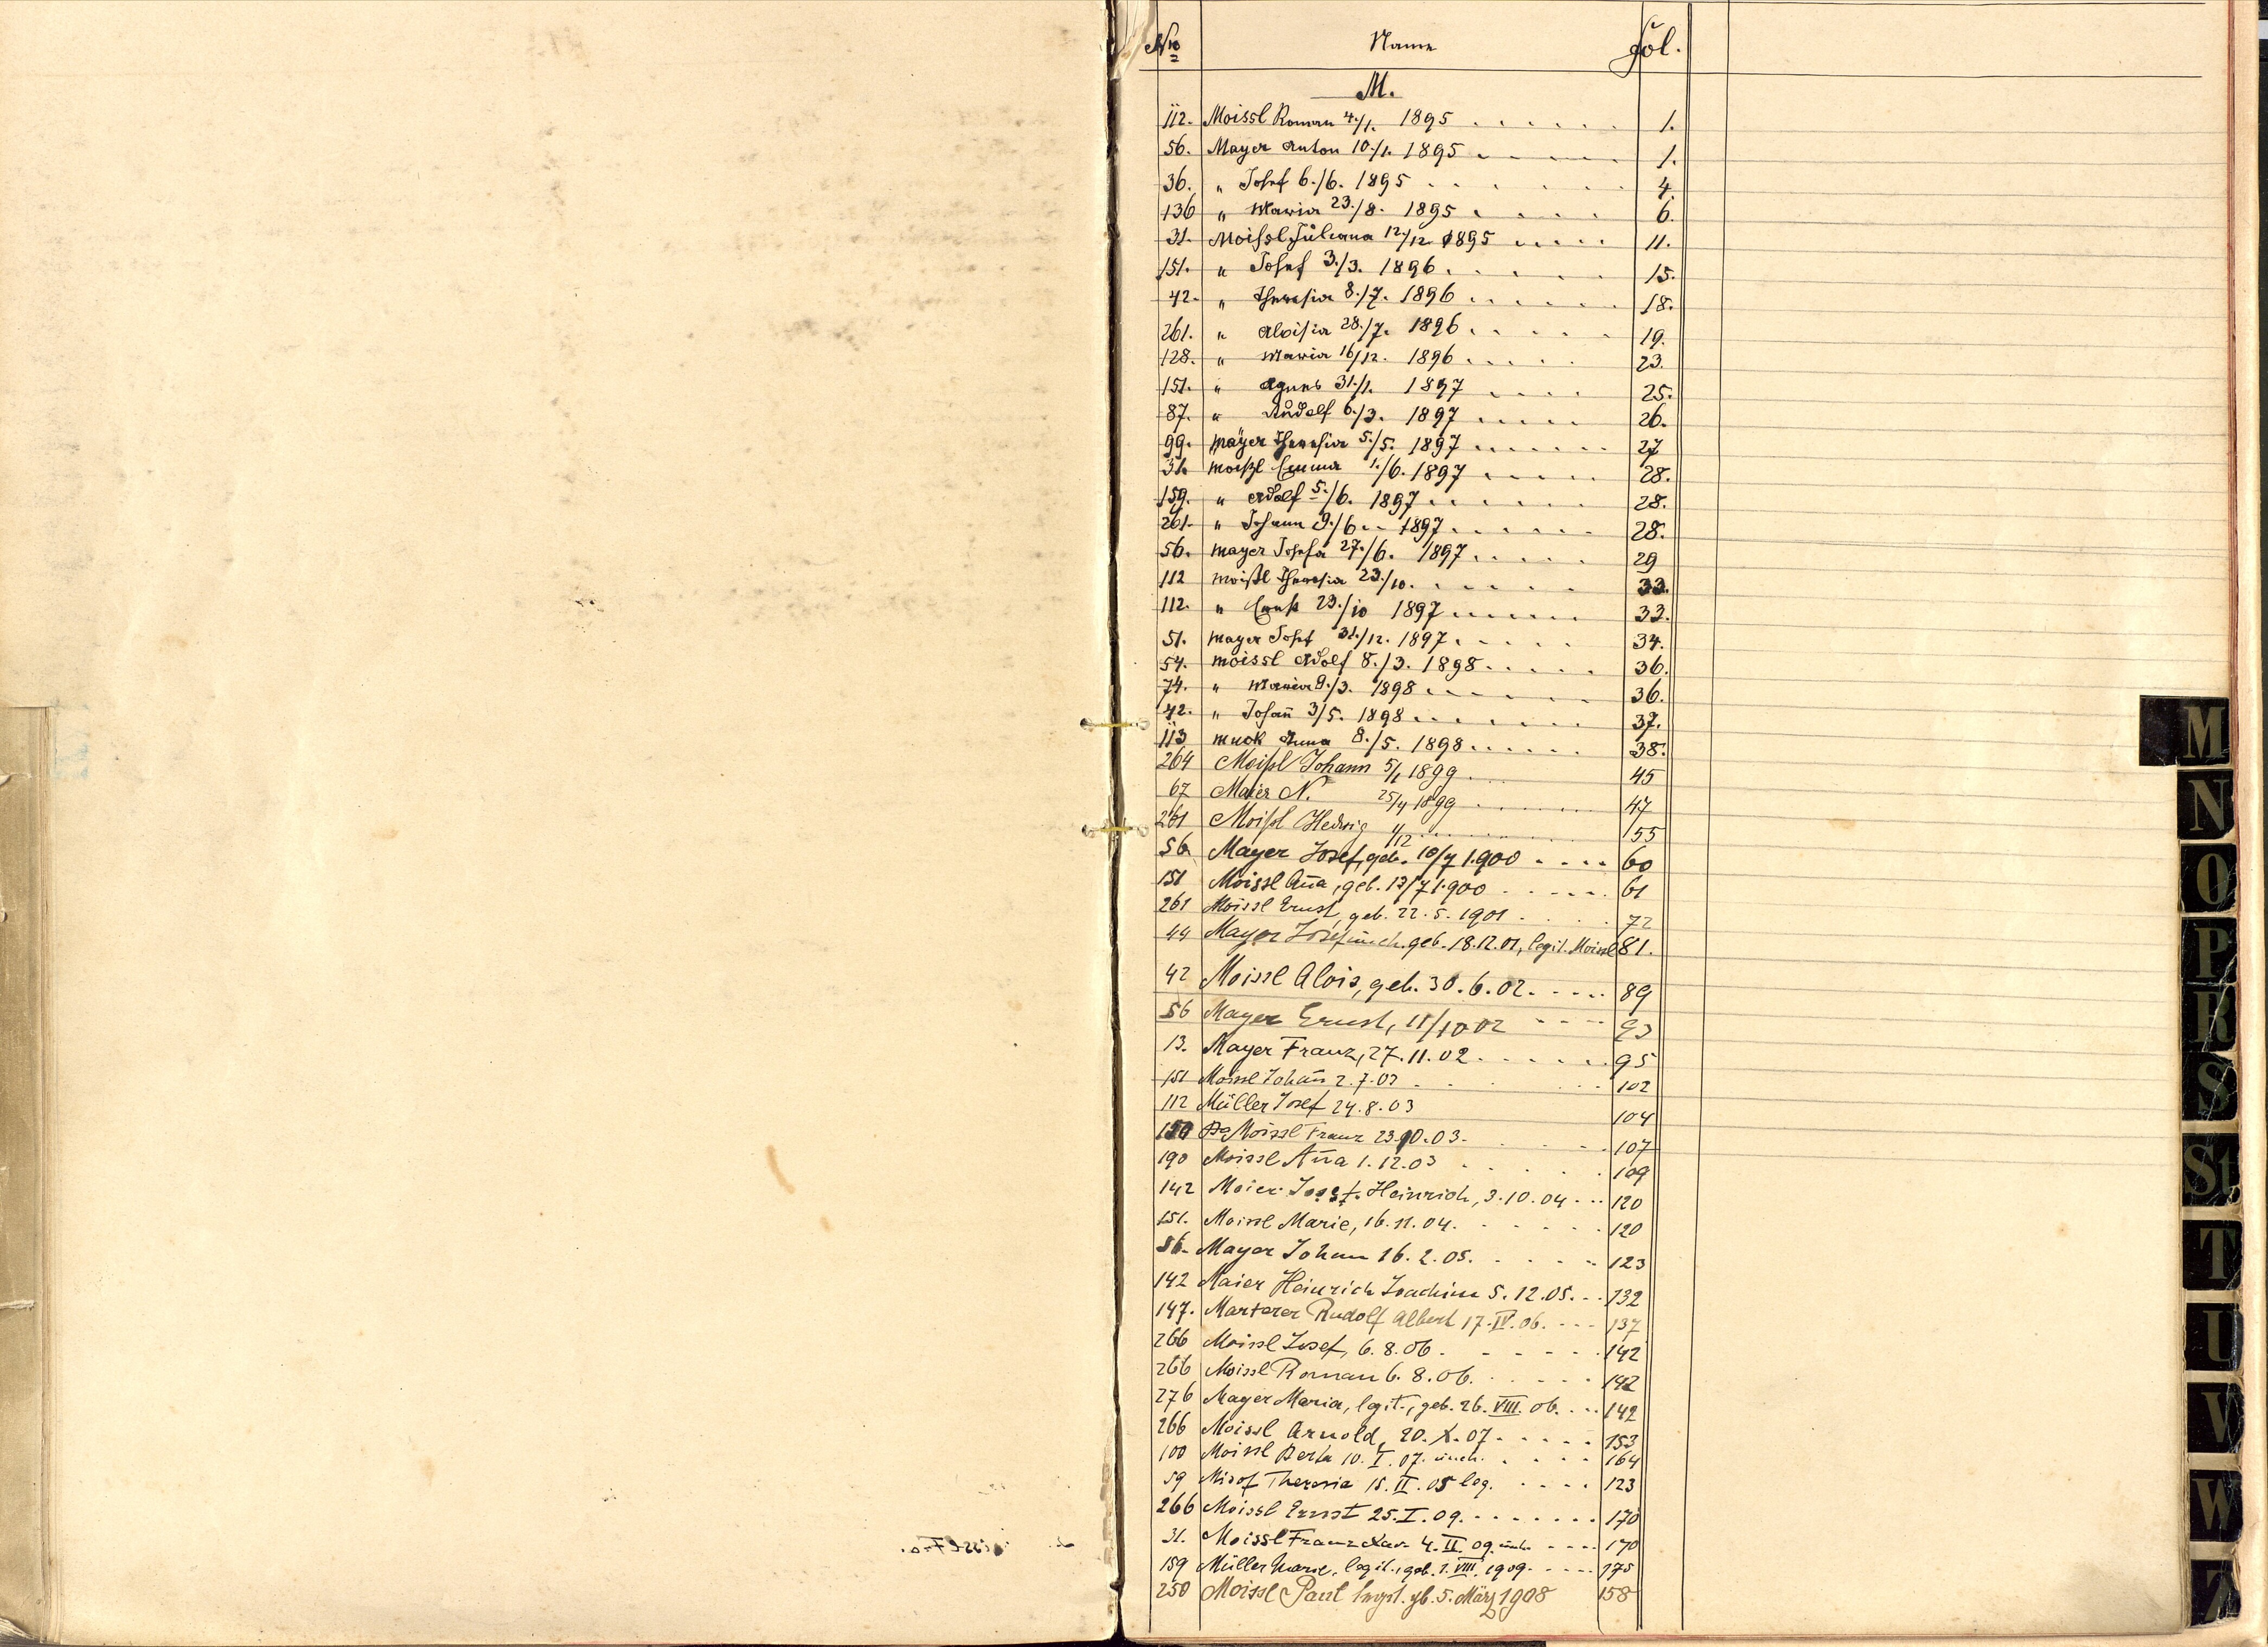 Nro Name Fol.
M.
112. Moissl Roman 4./1. 1895 . . . . . . 1.
56. Mayer Anton 10./1. 1895 . . . . . 1.
36. " Josef 6./6. 1895 . . . . . . 4.
136 " Maria 23./8. 1895 . . . . . 6.
31. Moissl Juliana 12./12. 1895 . . . . . 11.
151. " Josef 3./3. 1896 . . . . . 15.
42. " Theresia 8./7. 1896 . . . . . . 18.
261. " Aloisia 28./7. 1896 . . . . . 19.
128. " Maria 16/12. 1896 . . . . . 23.
151. " Agnes 31./1. 1897 . . . . 25.
87. " Rudolf 6./3. 1897 . . . . . 26.
99. Mayer Theresia 5./5. 1897 . . . . . . 27
31. Moißl Emma 1./6. 1897 . . . . . 28.
159. " Adolf 5./6. 1897 . . . . . . 28.
261. " Johann 9./6. 1897 . . . . . . 28.
56. Mayer Josefa 27./6. 1897 . . . . . 29
112 Moißl Theresia 23./10. . . . . . . 33.
112. " Ernst 23./10 1897 . . . . . . 33.
51. Mayer Josef 31./12. 1897 . . . . . 34.
54. Moissl Adolf 8./3. 1898 . . . . . 36.
74. " Maria 9./3. 1898 . . . . . . 36.
42. " Johan̄ 3/5. 1898 . . . . . . 37.
113 Muck Anna 8./5. 1898 . . . . . . 38.
264 Moißl Johann 5/1 1899 . . . 45
67 Maier N. 25/4 1899 . . . . . . 47
261 Moißl Hedwig 11/12 . . . . . . 55
56 Mayer Josef, geb. 10/7 1900 . . . . 60
151 Moissl An̄a, geb. 13/7 1900 . . . . . 61
261 Moissl Ernst, geb. 22.5.1901 . . . . . 72
44 Mayer Josef unehl. geb. 18.12.01, legit. Moissl 81.
42 Moissl Alois, geb. 30.6.02. . . . . 89
56 Mayer Ernst, 11/10 02 . . . . 93
13. Mayer Franz, 27.11.02 . . . . . . 95
151 Moissl Johan̄ 2.7.03 . . . . . 102
112 Müller Josef 24.8.03 104
159 Moissl Franz 23.10.03. . . . . 107
190 Moissl An̄a 1.12.03 . . . . . . 109
142 Maier Josef Heinrich, 3.10.04 . . . 120
151. Moissl Marie, 16.11.04. . . . . . . 120
56. Mayer Johann 16.2.05. . . . . . 123
142 Maier Heinrich Joachim 5.12.05. . . 132
147. Marterer Rudolf Albert 17.IV.06. . . . 137
266 Moissl Josef, 6.8.06. . . . . . 142
266 Moissl Roman 6.8.06. . . . . . 142
276 Mayer Maria, legit., geb. 26.VIII.06. . . . 142
266 Moissl Arnold, 20.X.07. . . . . 153
100 Moissl Berta 10.I.07. unehl. . . . . . 164
59 Misof Theresia 15.II.05 leg. . . . . 123
266 Moissl Ernst 25.I.09. . . . . . . 170
31. Moissl Franz Xav. 4.II.09. unehl. . . . . 170
159 Müller Marie, legit., geb. 1.VIII.1909. . . . . 175
250 Moissl Paul legit. gb. 5. März 1908 158
M
N
O
P
R
S
St
T
U
V
W
Z